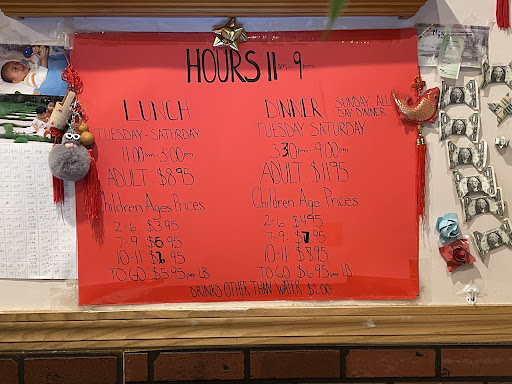 HOURS 11am-9pm
LUNCH
TUESDAY-SATURDAY
11:00am-3:00pm
ADULT $8.95
Children Ages Prices
2-6 $3.95
7-9 $6.95
10-11 $7.95
TO GO $5.95 per LB
DINNER
SUNDAY ALL DAY DINNER
TUESDAY SATURDAY
3:30pm-9:00pm
ADULT $11.95
Children Age Prices
2-6 $4.95
7-9 $7.95
10-11 $8.95
TO GO $6.95 per LB
DRINKS OTHER THAN WATER $2.00